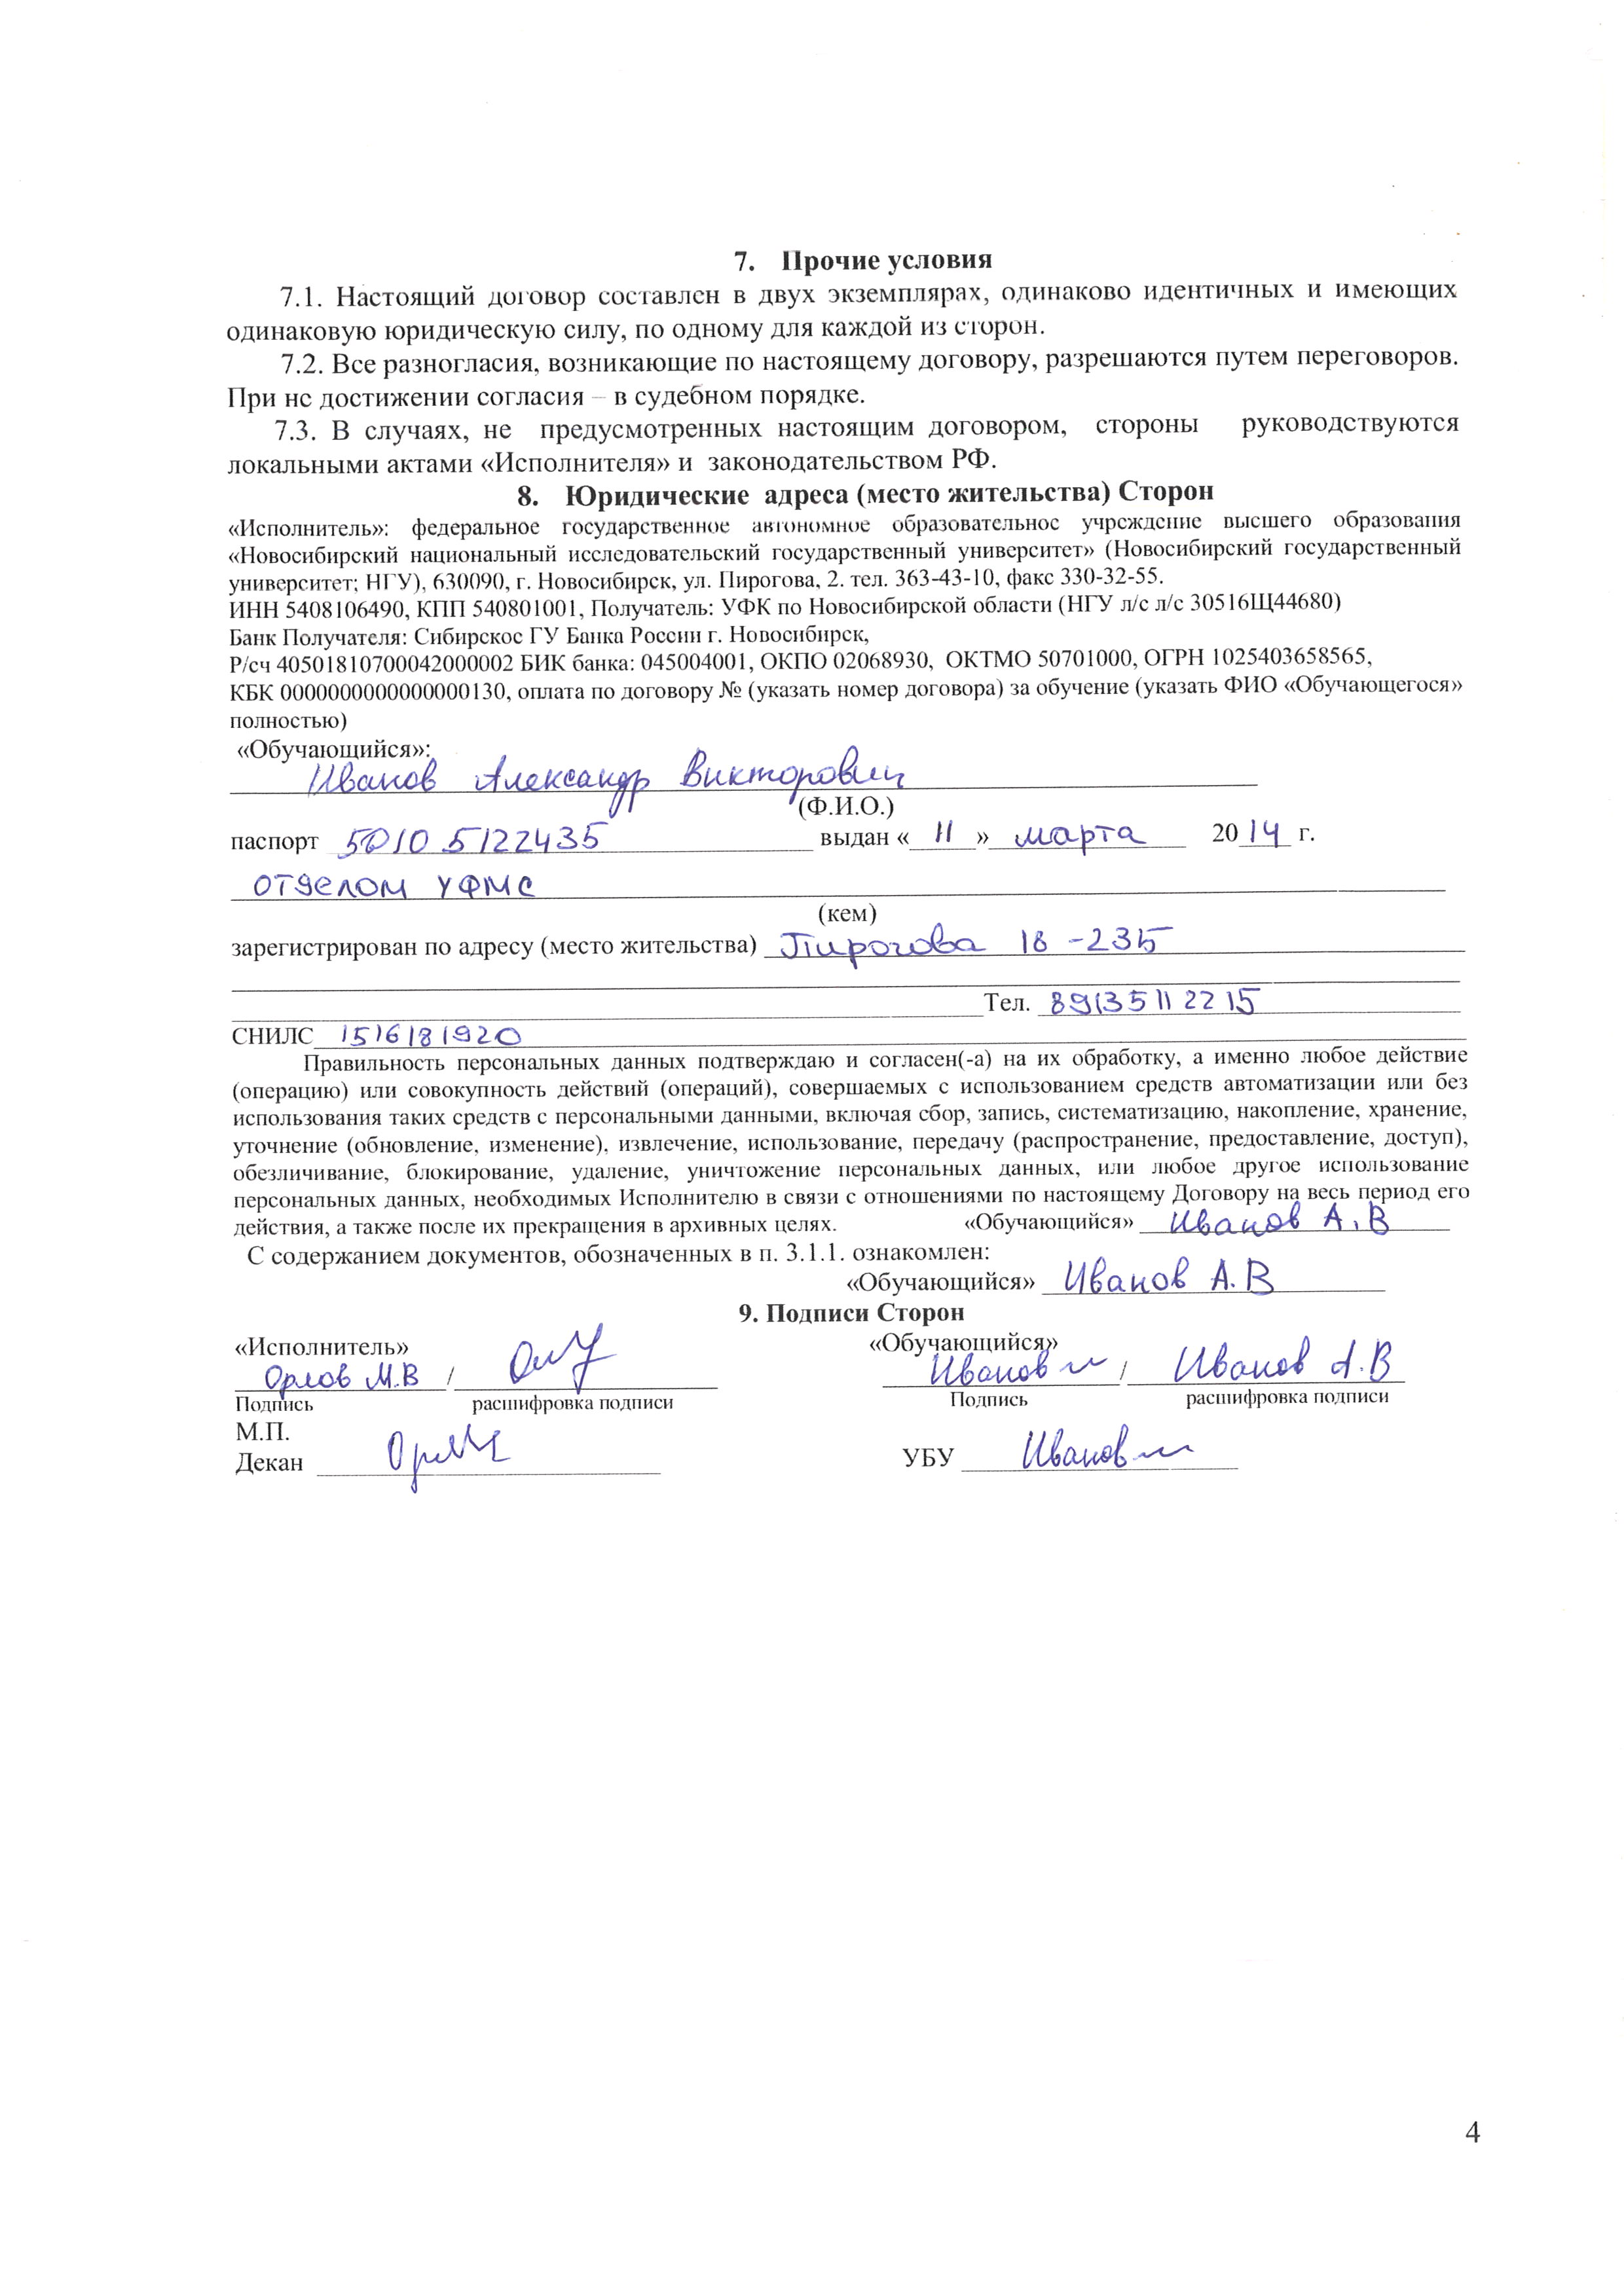 7. Прочие условия
7.1. Настоящий договор составлен в двух экземплярах, одинаково идентичных и имеющих
одинаковую юридическую силу, по одному для каждой из сторон.
7.2. Все разногласия, возникающие по настоящему договору, разрешаются путем переговоров.
При не достижении согласия – в судебном порядке.
7.3. В случаях, не предусмотренных настоящим договором, стороны руководствуются
локальными актами «Исполнителя» и законодательством РФ.
8. Юридические адреса (место жительства) Сторон
«Исполнитель»: федеральное государственное автономное образовательное учреждение высшего образования
«Новосибирский национальный исследовательский государственный университет» (Новосибирский государственный
университет; НГУ), 630090, г. Новосибирск, ул. Пирогова, 2. тел. 363-43-10, факс 330-32-55.
ИНН 5408106490, КПП 540801001, Получатель: УФК по Новосибирской области (НГУ л/с л/с 30516Щ44680)
Банк Получателя: Сибирское ГУ Банка России г. Новосибирск,
Р/сч 40501810700042000002 БИК банка: 045004001, ОКПО 02068930, ОКТМО 50701000, ОГРН 1025403658565,
КБК 00000000000000000130, оплата по договору № (указать номер договора) за обучение (указать ФИО «Обучающегося»
полностью)
«Обучающийся»:
Иванов Александр Викторович
(Ф.И.О.)
паспорт 5010 5122435 выдан « 11 » марта 2014 г.
отделом УФМС
(кем)
зарегистрирован по адресу (место жительства) Пирогова 18 -235
Тел. 8913511 22 15
СНИЛС 1516181920
Правильность персональных данных подтверждаю и согласен(-а) на их обработку, а именно любое действие
(операцию) или совокупность действий (операций), совершаемых с использованием средств автоматизации или без
использования таких средств с персональными данными, включая сбор, запись, систематизацию, накопление, хранение,
уточнение (обновление, изменение), извлечение, использование, передачу (распространение, предоставление, доступ),
обезличивание, блокирование, удаление, уничтожение персональных данных, или любое другое использование
персональных данных, необходимых Исполнителю в связи с отношениями по настоящему Договору на весь период его
действия, а также после их прекращения в архивных целях. «Обучающийся» Иванов А.В
С содержанием документов, обозначенных в п. 3.1.1. ознакомлен:
«Обучающийся» Иванов А.В
9. Подписи Сторон
«Исполнитель» «Обучающийся»
Орлов М.В / Иванов / Иванов А.В
Подпись расшифровка подписи Подпись расшифровка подписи
М.П.
Декан УБУ Иванов
4